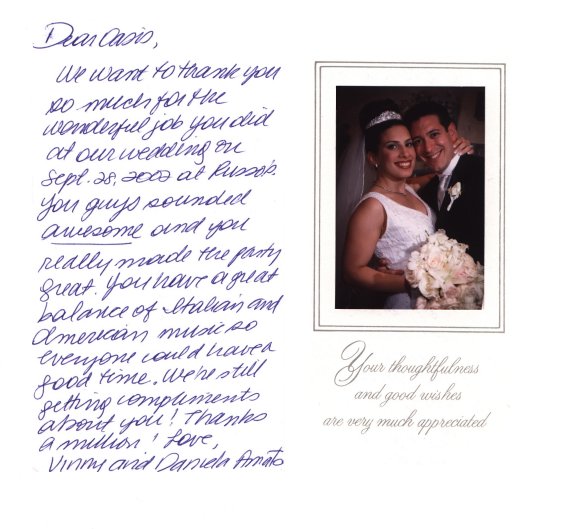 Dear Oasis,
We want to thank you
so much for the
wonderful job you did
at our wedding on
Sept. 28, 2002 at Russo's.
You guys sounded
awesome and you
really made the party
great. You have a great
balance of Italian and
American music so
everyone could have a
good time. We're still
getting compliments
about you! Thanks
a million! Love,
Vinny and Daniela Amato
Your thoughtfulness
and good wishes
are very much appreciated